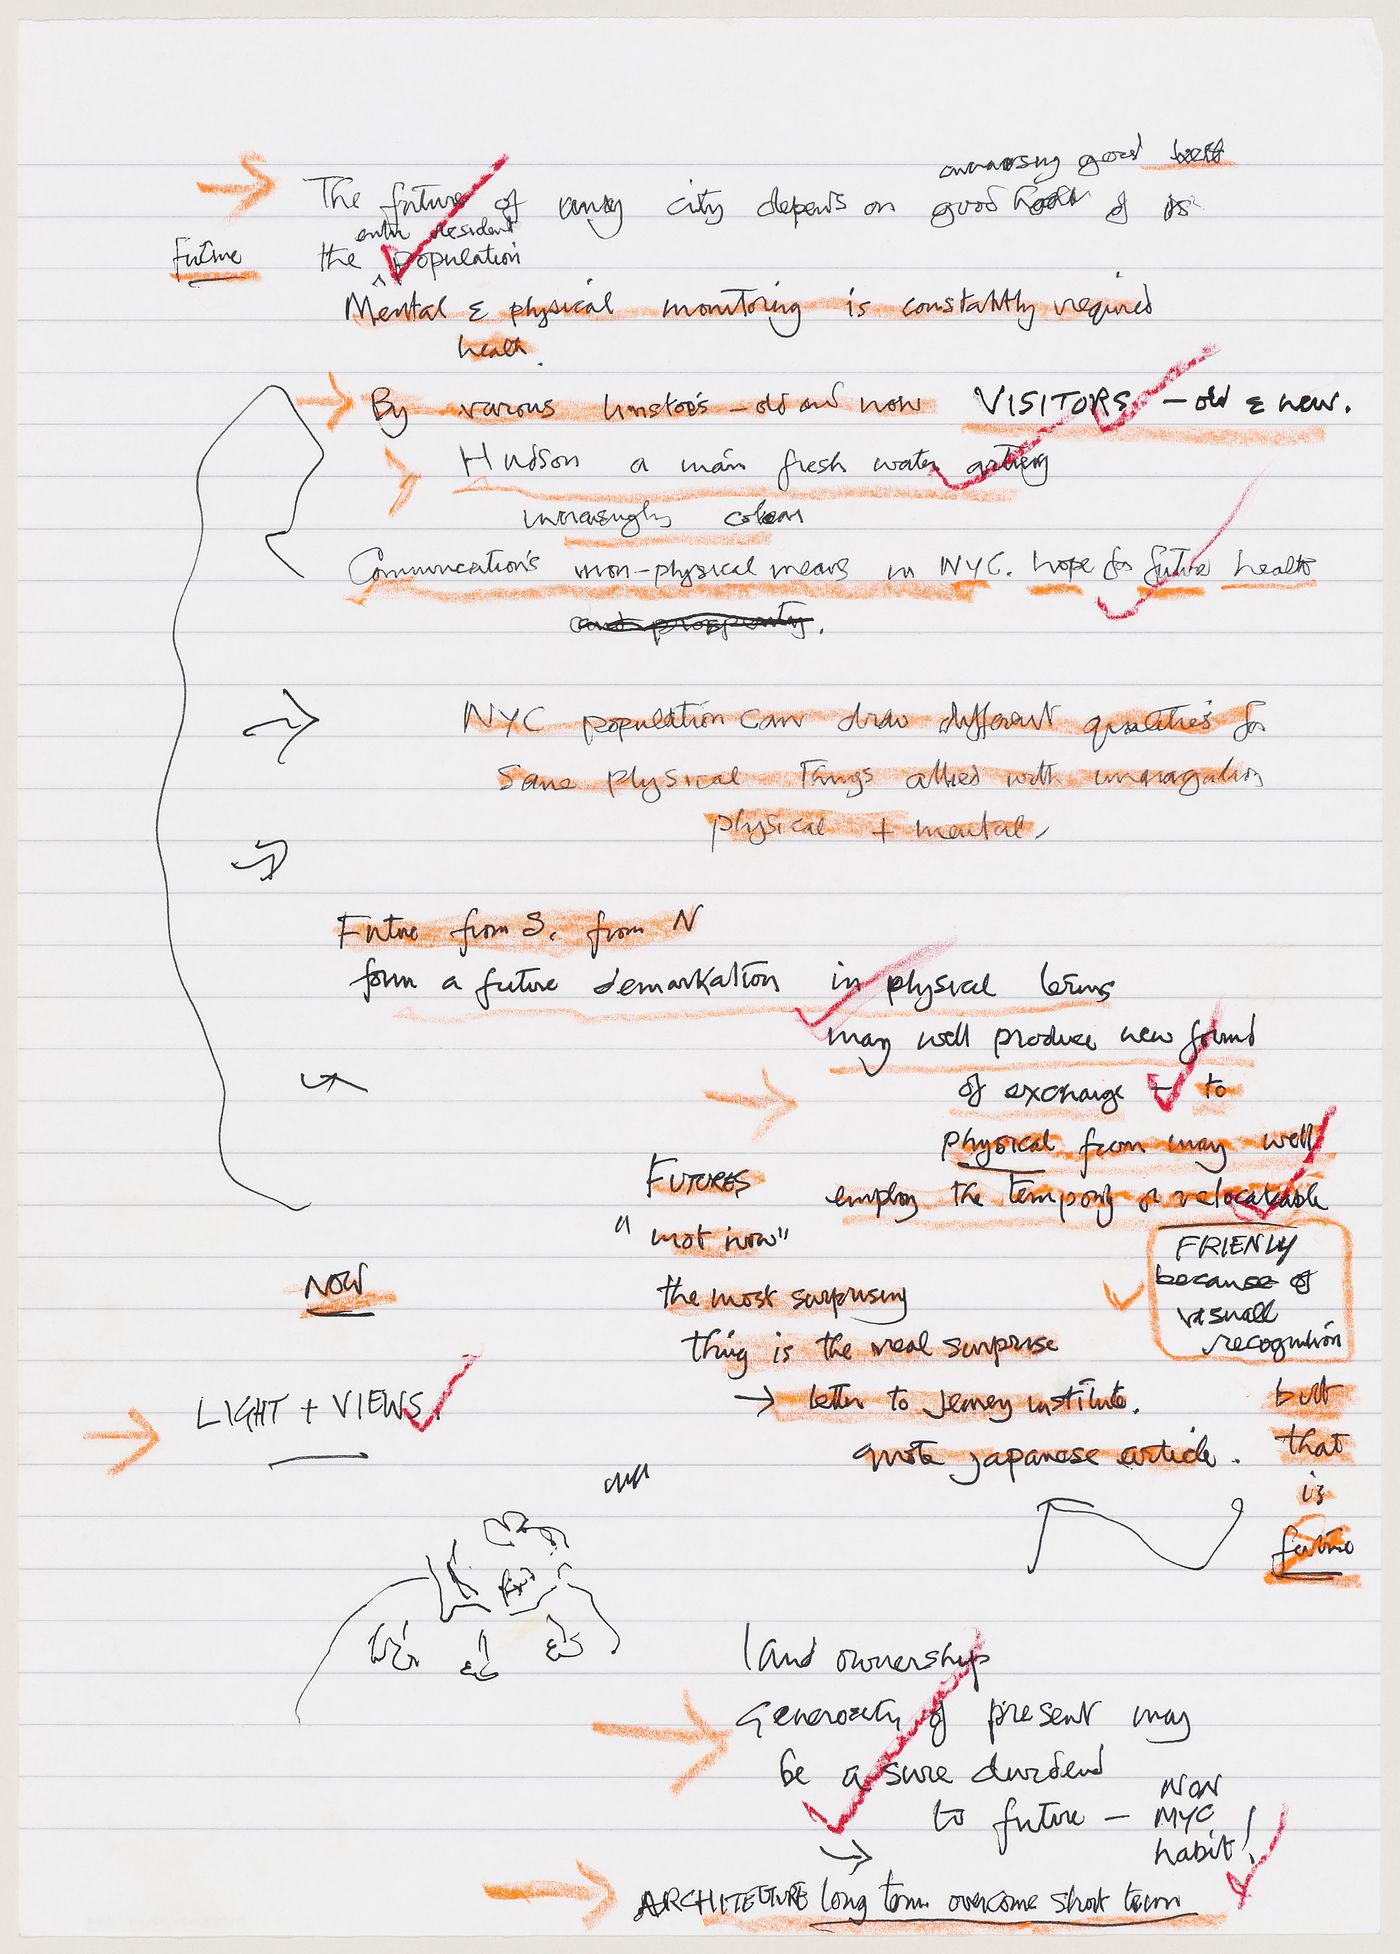 increasing good
The future of any city depends on good of
entire resident
Future
the population
Mental & physical monitoring is constantly required
health.
By various – old and now VISITORS – old & new.
Hudson a main fresh water artery
increasingly clean
Communications non-physical means in NYC. hope for future health
and prosperity.
NYC population can draw different qualities for
same physical things allied with imagination
physical + mental.
Future from S. from N
form a future demarkation in physical terms
may well produce new found
of exchange – to
physical from may well
FUTURES
employ the tempory or relocatable
"not now"
FRIENLY
because of
visuall
recognition
NOW
the most surprising
thing is the real surprise
LIGHT + VIEWS.
→ letter to Jerney institute.
but
quote japanese article.
that
is
future
land ownership
Generosity of present may
be a sure dividend
to future –
NON
NYC
habit!
ARCHITETURE long term overcome short term